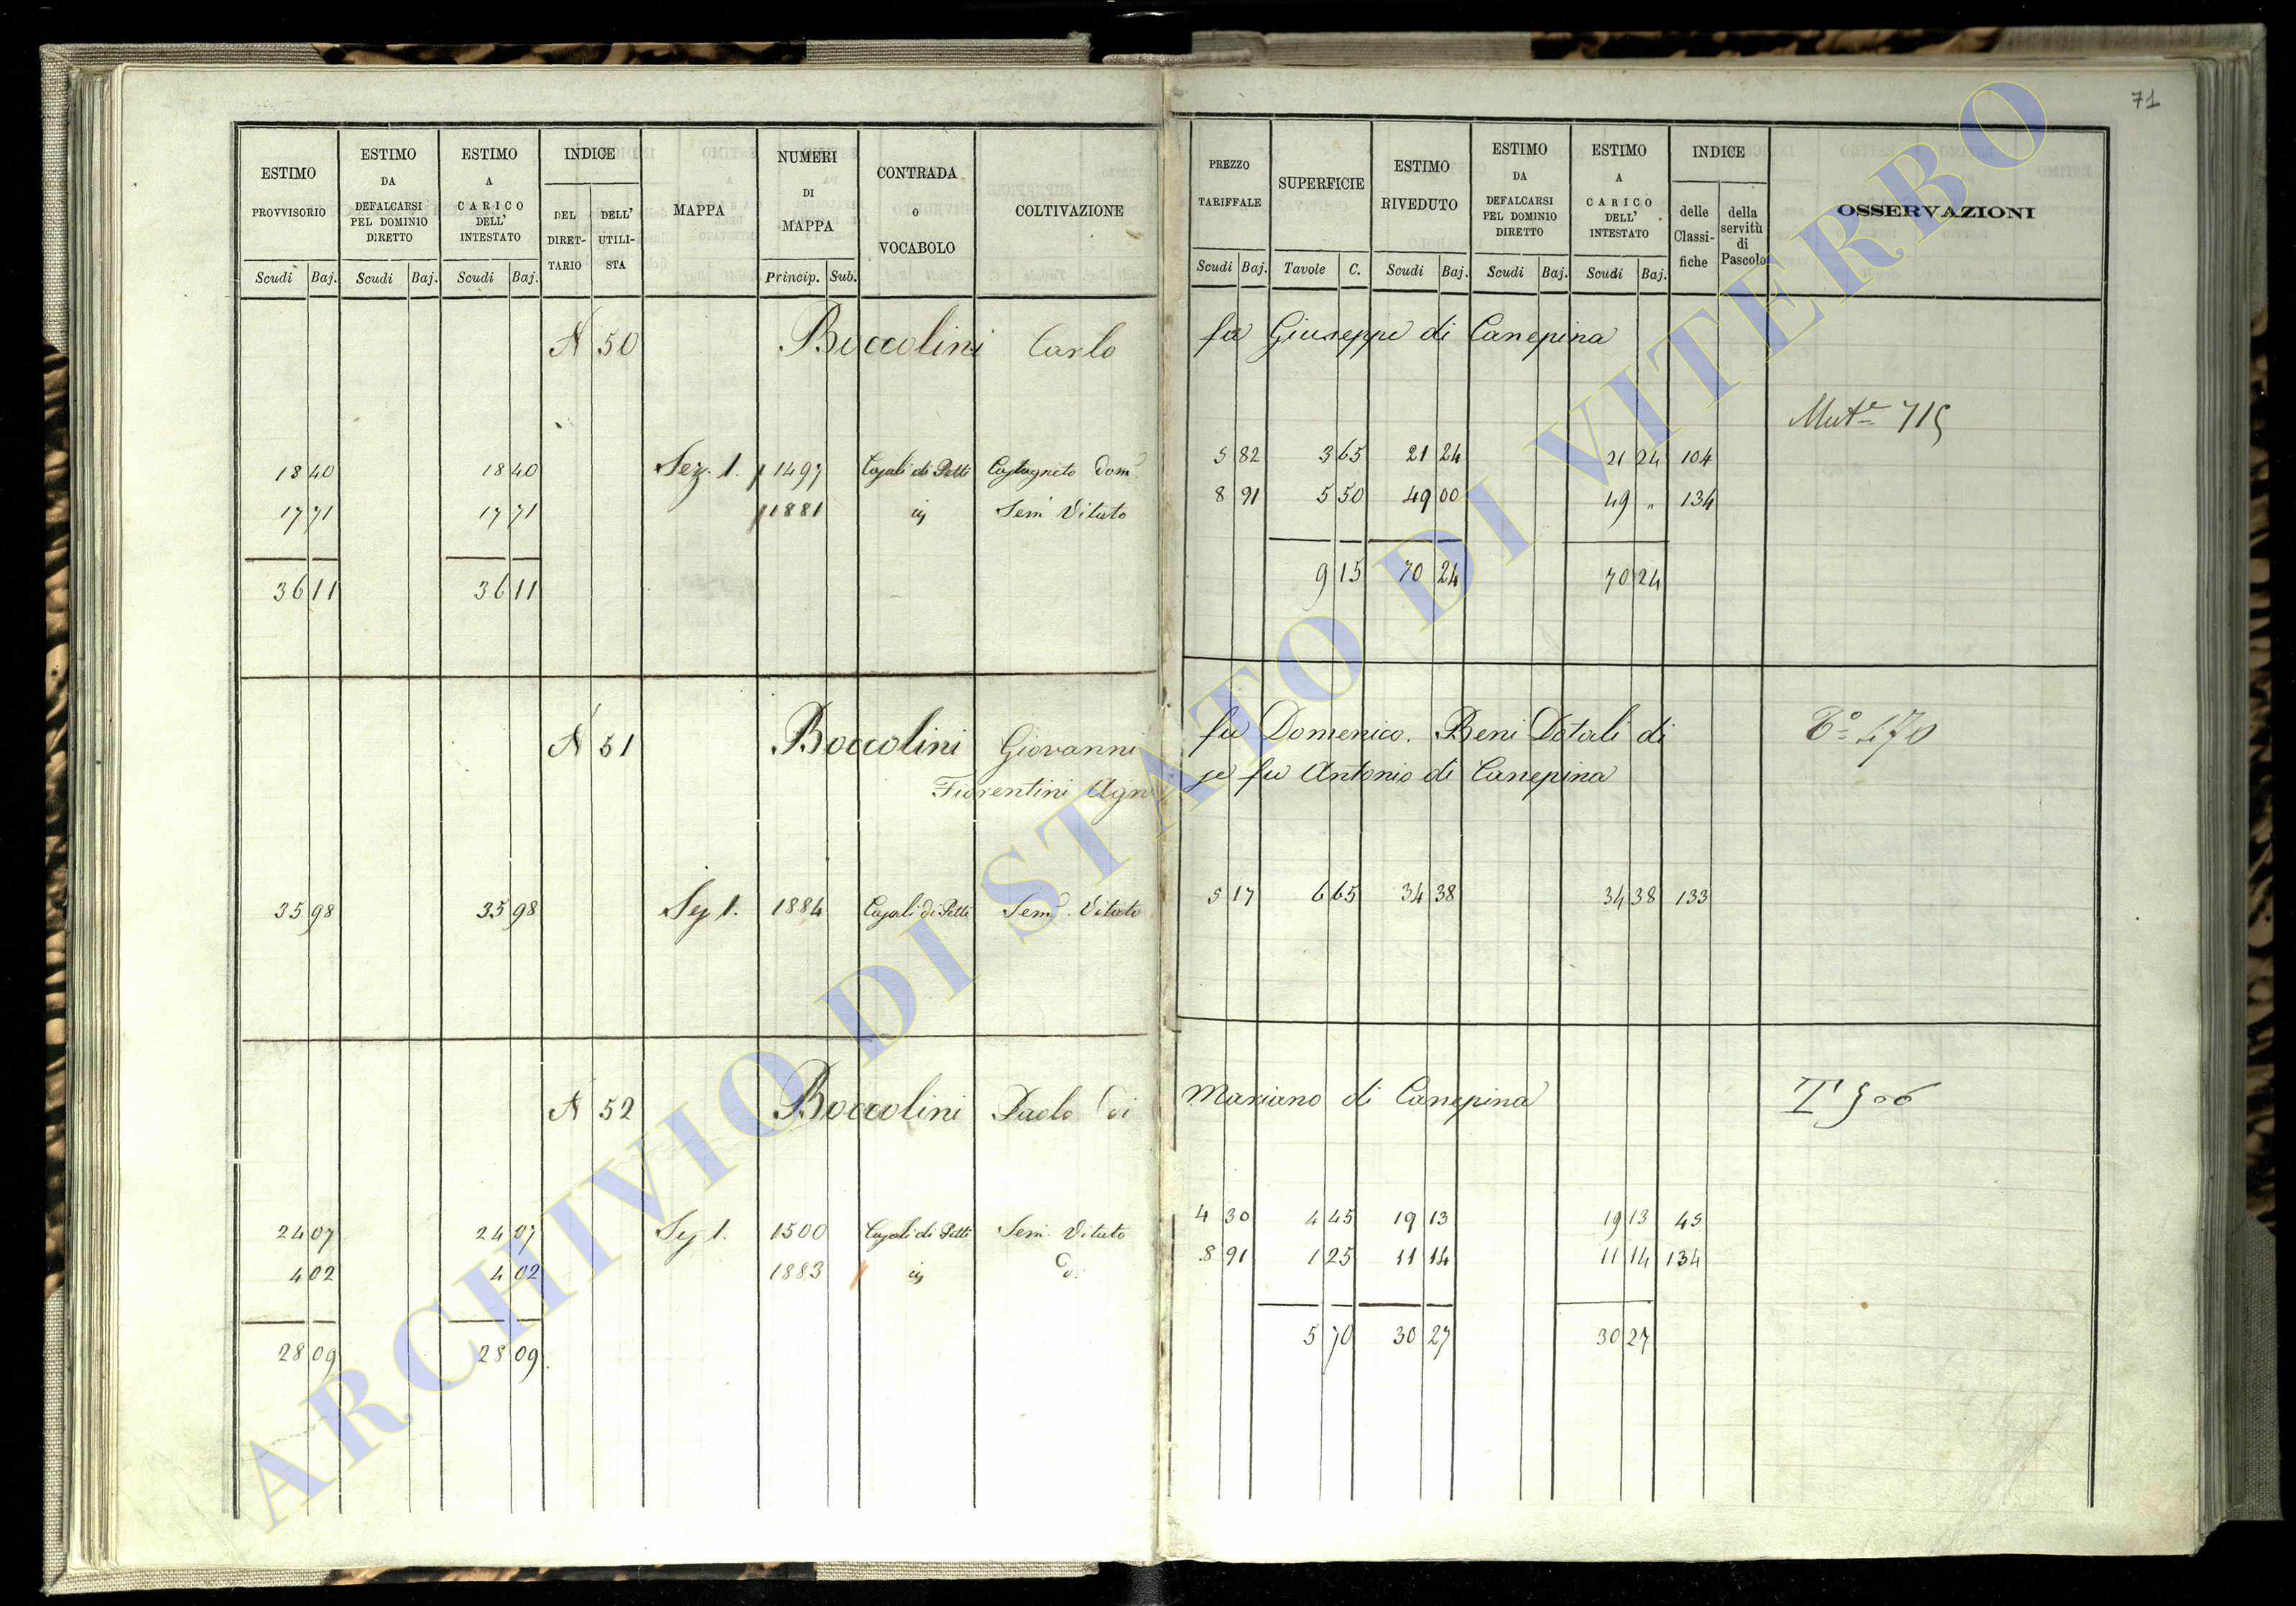 71
ESTIMO PROVVISORIO Scudi Baj. | ESTIMO DA DEFALCARSI PEL DOMINIO DIRETTO Scudi Baj. | ESTIMO A CARICO DELL' INTESTATO Scudi Baj. | INDICE DEL DIRET-TARIO DELL' UTILI-STA | MAPPA | NUMERI DI MAPPA Princip. Sub. | CONTRADA O VOCABOLO | COLTIVAZIONE | PREZZO TARIFFALE Scudi Baj. | SUPERFICIE Tavole C. | ESTIMO RIVEDUTO Scudi Baj. | ESTIMO DA DEFALCARSI PEL DOMINIO DIRETTO Scudi Baj. | ESTIMO A CARICO DELL' INTESTATO Scudi Baj. | INDICE delle Classi-fiche della servitù di Pascolo | OSSERVAZIONI
N 50 Boccolini Carlo fu Giuseppe di Canepina
Mut.e 715
18 40 18 40 Sez. 1. 1497 Casali di Petti Castagneto Dom. 5 82 3 65 21 24 21 24 104
17 71 17 71 1881 Sem Vitato 8 91 5 50 49 00 49 " 134
36 11 36 11 9 15 70 24 70 24
N 51 Boccolini Giovanni fu Domenico. Beni Dotali di T.o 470
Fiorentini Agnese fu Antonio di Canepina
35 98 35 98 Sez 1. 1884 Casali di Petti Sem. Vitato 5 17 6 65 34 38 34 38 133
N 52 Boccolini Paolo di Mariano di Canepina
24 07 24 07 Sez 1. 1500 Casali di Petti Sem. Vitato 4 30 4 45 19 13 19 13 45
4 02 4 02 1883 d. 8 91 1 25 11 14 11 14 134
28 09 28 09 5 70 30 27 30 27
ARCHIVIO DI STATO DI VITERBO